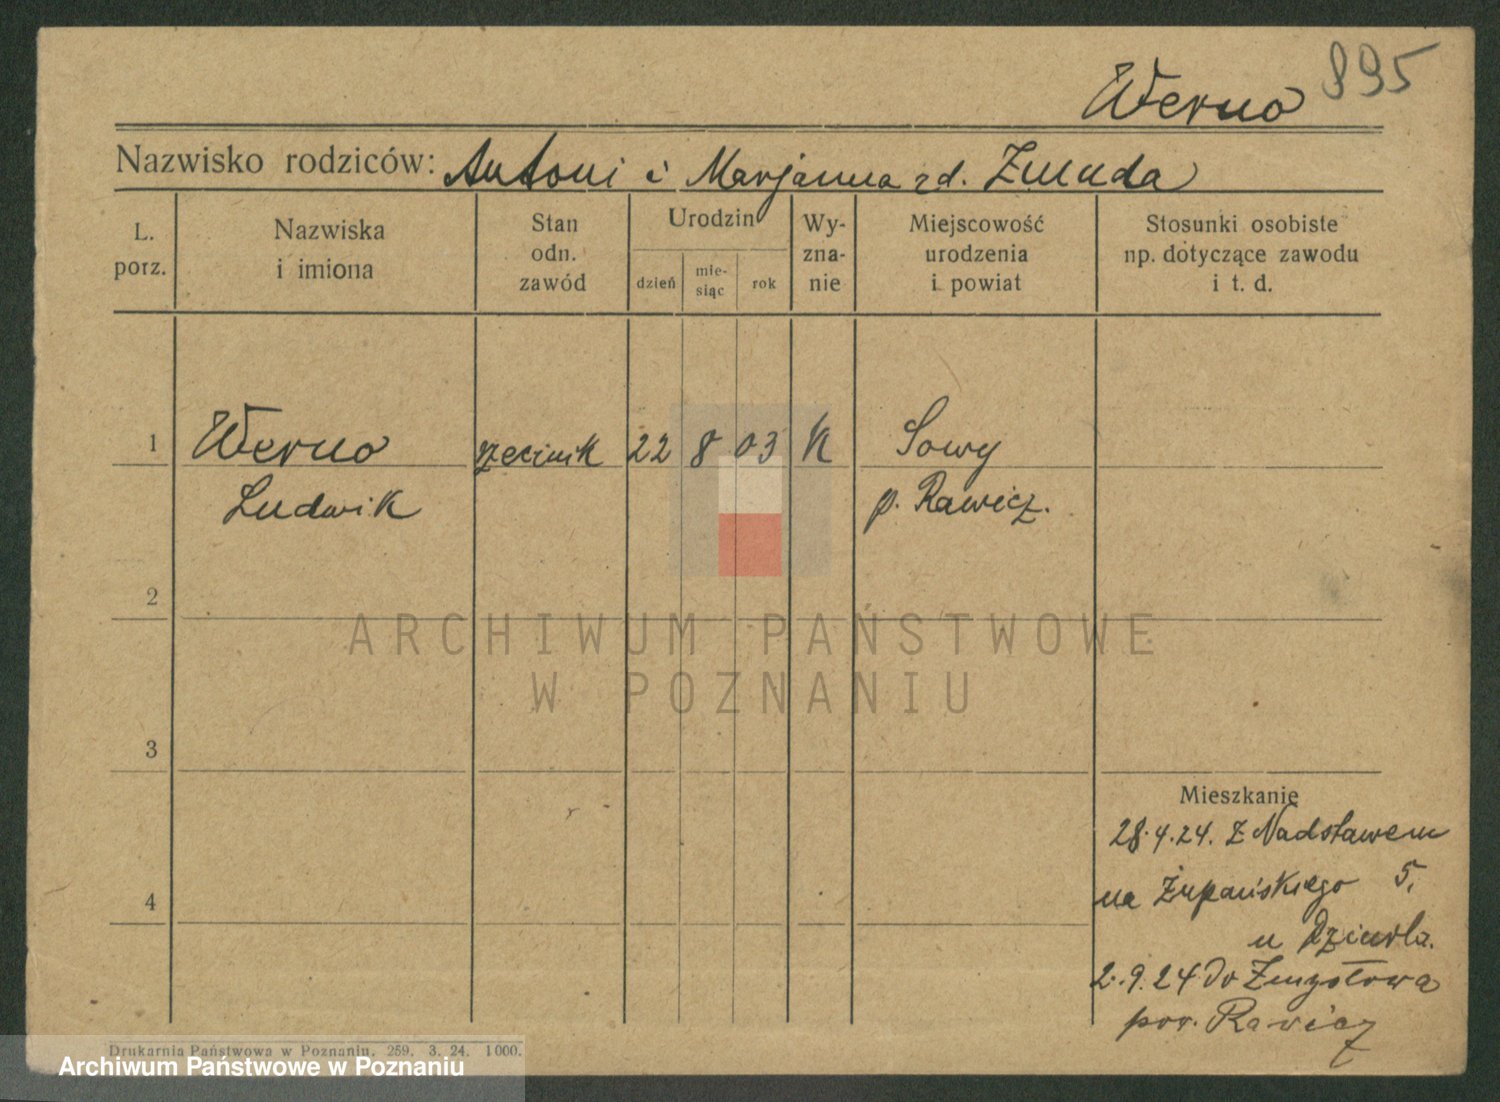 Werno 895
Nazwisko rodziców: Antoni i Marjanna zd. Żmuda
L. porz.
Nazwiska i imiona
Stan odn. zawód
Urodzin
dzień
mie-
siąc
rok
Wy-
zna-
nie
Miejscowość urodzenia i powiat
Stosunki osobiste np. dotyczące zawodu i t. d.
1 Werno rzeźnik 22 8 03 K Sowy
Ludwik p. Rawicz.
2
ARCHIWUM PAŃSTWOWE
W POZNANIU
3
Mieszkanie
28.4.24. z Nadstawem
na Żupańskiego 5,
4
u
2.9.24 do Zmysłowa
pow. Rawicz
Drukarnia Państwowa w Poznaniu. 259. 3. 24. 1000.
Archiwum Państwowe w Poznaniu